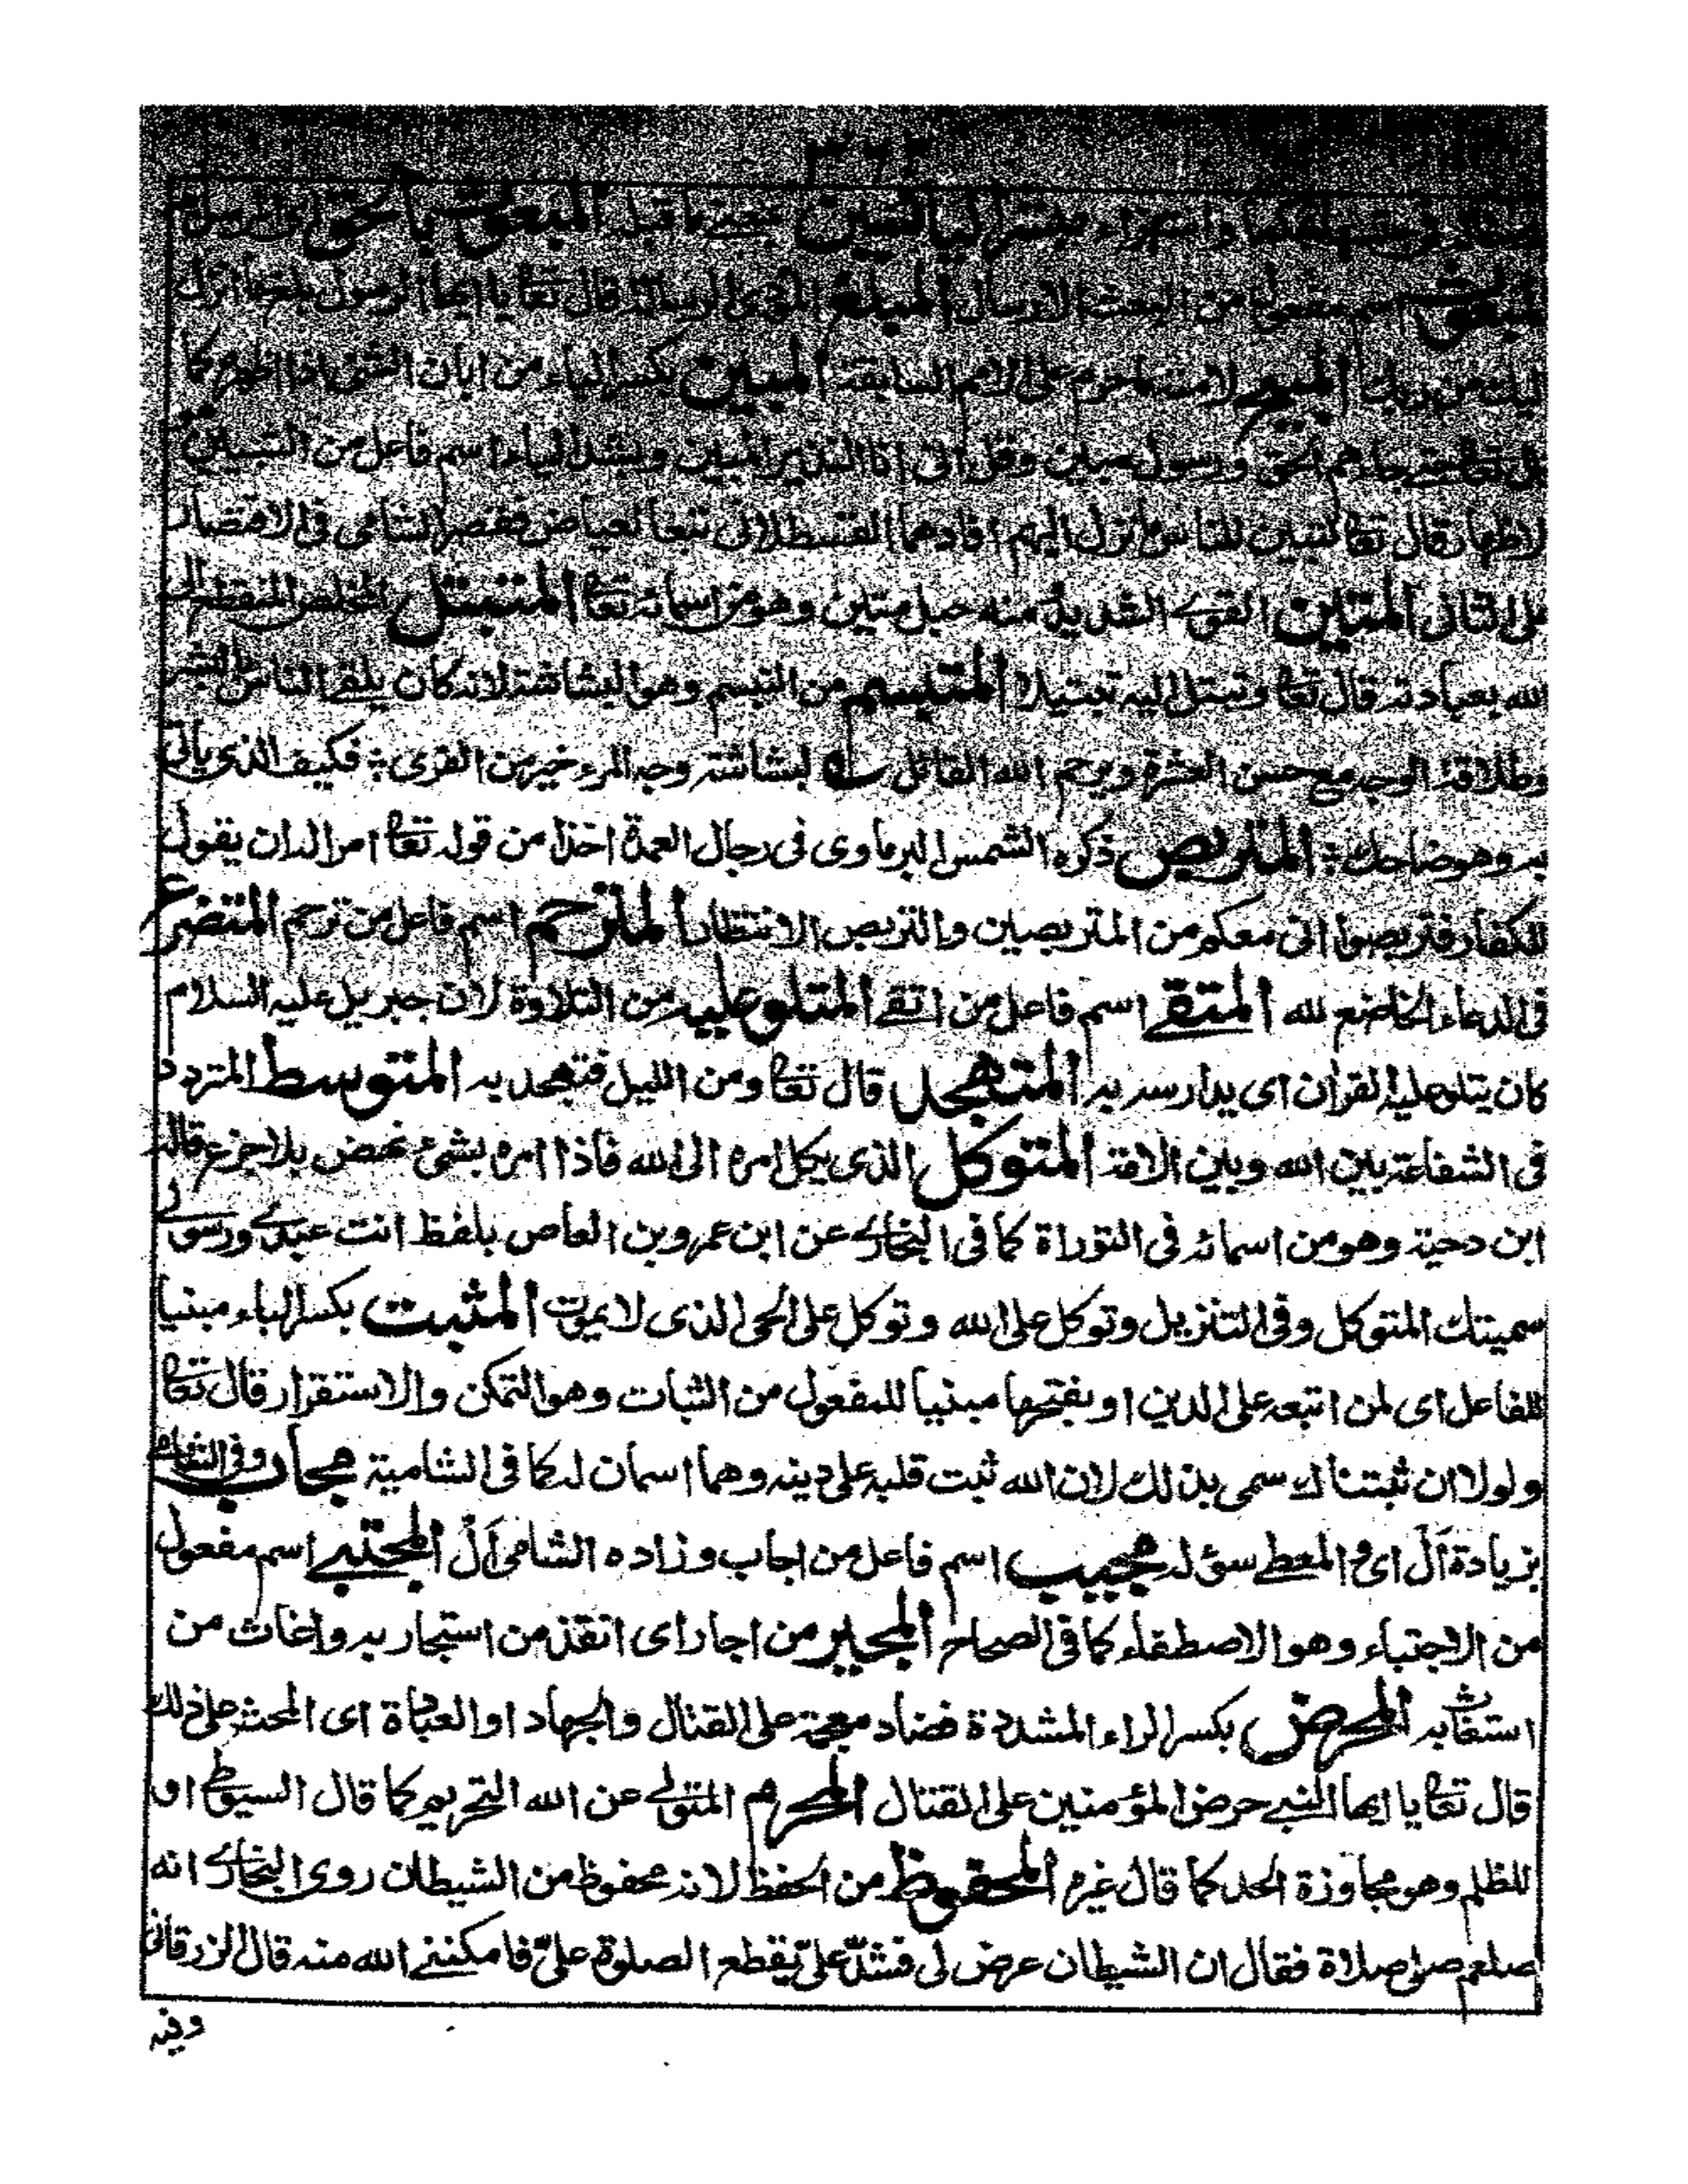 ٣٦٢
واستهزاء مبشر اليائسين بمعنى ما قبله المبعوث بالحق
المبعوث اسم مفعول من البعث الارسال المبلغ المؤدى الرسالة قال تعا يا ايها الرسول بلغ ما انزل
اليك من ربك المبيح لامته ما حرم على الامم السابقة المبين بكسر الباء من ابان الشئ اذا اظهره كما
قال تعا حتى جاءهم الحق ورسول مبين وقل انى انا النذير المبين وبشد الياء اسم فاعل من التبيين
الاظهار قال تعا لتبين للناس ما نزل اليهم افادهما القسطلانى تبعا لعياض فقصر الشامى فى الاقتصار
على الثانى المتين القوے الشديد منه حبل متين وهو من اسمائه تعا المتبتل المخلص المنقطع الى
الله بعبادته قال تعا وتبتل اليه تبتيلا المتبسم من التبسم وهو البشاشة لانه كان يلقى الناس بالبشر
وطلاقة الوجه مع حسن العشرة ويرحم الله القائل ؎ لبشاشة وجه المرء خير من القرى ؛ فكيف الذى ياتى
به وهو ضاحك ؛ المتربص ذكره الشمس البرماوى فى رجال العمدة اخذا من قوله تعا امرا له ان يقول
للكفار فتربصوا انى معكم من المتربصين والتربص الانتظار المترحم اسم فاعل من ترحم المتضرع
فى الدعاء الخاضع لله المتقے اسم فاعل من اتقے المتلو عليه من التلاوة لان جبريل عليه السلام
كان يتلو عليه القران اى يدارسه به المتهجد قال تعا ومن الليل فتهجد به المتوسط المتردد
فى الشفاعة بين الله وبين الامة المتوكل الذى يكل امره الى الله فاذا امره بشئ نهض بلا جزع قاله
ابن دحية وهو من اسمائه فى التوراة كما فى البخارے عن ابن عمرو بن العاص بلفظ انت عبدے ورسولى
سميتك المتوكل وفى التنزيل وتوكل على الله وتوكل على الحى الذى لا يموت المثبت بكسر الباء مبنيا
للفاعل اى لمن اتبعه على الدين او بفتحها مبنيا للمفعول من الثبات وهو التمكن والاستقرار قال تعا
ولولا ان ثبتناك سمى بذلك لان الله ثبت قلبه على دينه وهما اسمان له كما فى الشامية مجاب وفى الشامى
بزيادة اَلْ اى المعطے سؤله مجيب اسم فاعل من اجاب وزاده الشامى اَلْ المجتبے اسم مفعول
من الاجتباء وهو الاصطفاء كما فى الصحاح المجير من اجار اى انقذ من استجار به واغاث من
استغاث به المحرض بكسر الراء المشددة فضاد معجمة على القتال والجهاد او العبادة اى المحث على ذلك
قال تعا يا ايها النبے حرض المؤمنين على القتال المحرم المتولے عن الله التحريم كما قال السيوطے او
للظلم وهو مجاوزة الحد كما قال غيره المحفوظ من الحفظ لانه محفوظ من الشيطان روى البخارے انه
صلعم صلى صلاة فقال ان الشيطان عرض لى فشدّ علىّ يقطع الصلوة علىّ فامكننے الله منه قال الزرقانى
وفيه